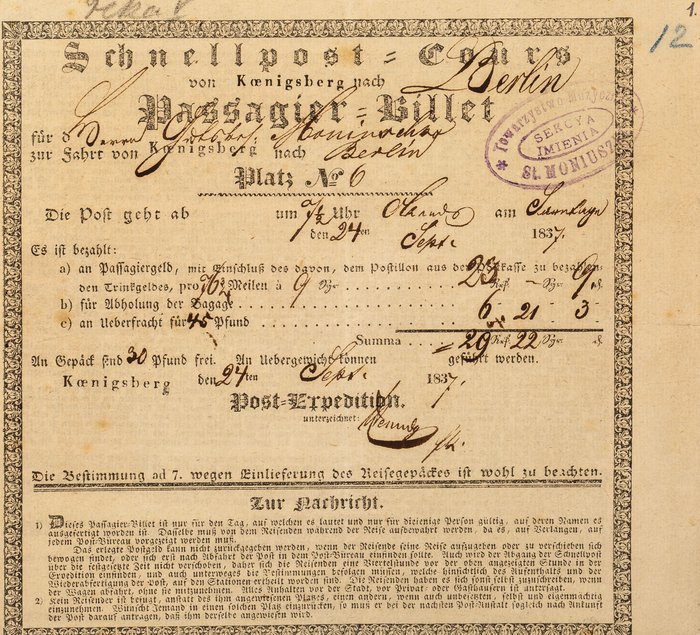 1.
12
Schnellpost = Cours
von Kœnigsberg nach Berlin
Passagier = Billet
für d Herrn Gutsbes.
zur Fahrt von Kœnigsberg nach Berlin
Towarzystwo Muzyczne
SEKCYA
IMIENIA
St. MONIUSZ
Platz No 6
Die Post geht ab um 7½ Uhr Abends am
den 24ten Sept. 1837.
Es ist bezahlt:
a) an Passagiergeld, mit Einschluß des davon, dem Postillon aus der Postkasse zu bezahlen-
den Trinkgeldes, pro Meilen à 9 Sgr. 23 Rtl. – Sgr. 9 d.
b) für Abholung der Bagage
c) an Ueberfracht für 45 Pfund 6 21 3
Summa = 29 Rtl. 22 Sgr. d.
An Gepäck sind 30 Pfund frei. An Uebergewicht können geführt werden.
Kœnigsberg den 24ten Sept. 1837.
Post-Expedition.
unterzeichnet:
Die Bestimmung ad 7. wegen Einlieferung des Reisegepäckes ist wohl zu beachten.
Zur Nachricht.
1) Dieses Passagier-Billet ist nur für den Tag, auf welchen es lautet und nur für diejenige Person gültig, auf deren Namen es
ausgefertigt worden ist. Dasselbe muß von dem Reisenden während der Reise aufbewahrt werden, da es, auf Verlangen, auf
jedem Post-Büreau vorgezeigt werden muß.
Das erlegte Postgeld kann nicht zurückgegeben werden, wenn der Reisende seine Reise aufzugeben oder zu verschieben sich
bewogen findet, oder sich erst nach Abfahrt der Post in dem Post-Büreau einfinden sollte. Auch wird der Abgang der Schnellpost
über die festgesetzte Zeit nicht verschoben, daher sich die Reisenden eine Viertelstunde vor der oben angezeigten Stunde in der
Expedition einfinden, und auch unterwegs die Bestimmungen befolgen müssen, welche hinsichtlich des Aufenthalts und der
Wiederabfertigung der Post, auf den Stationen ertheilt worden sind. Die Reisenden haben es sich sonst selbst zuzuschreiben, wenn
der Wagen abfährt, ohne sie mitzunehmen. Alles Anhalten vor der Stadt, vor Privat- oder Gasthäusern ist untersagt.
2) Kein Reisender ist befugt, anstatt des ihm angewiesenen Platzes, einen andern, wenn auch unbesetzten, selbst und eigenmächtig
einzunehmen. Wünscht Jemand in einen solchen Platz einzurücken, so muß er bei der nächsten Post-Anstalt sogleich nach Ankunft
der Post darauf antragen, daß ihm derselbe angewiesen wird.